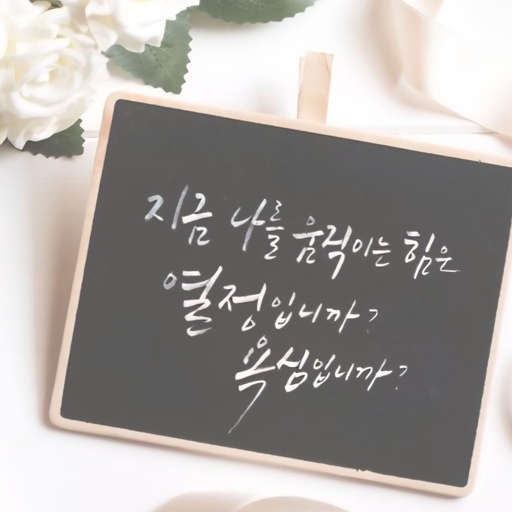 지금 나를 움직이는 힘은
열정입니까?
욕심입니까?